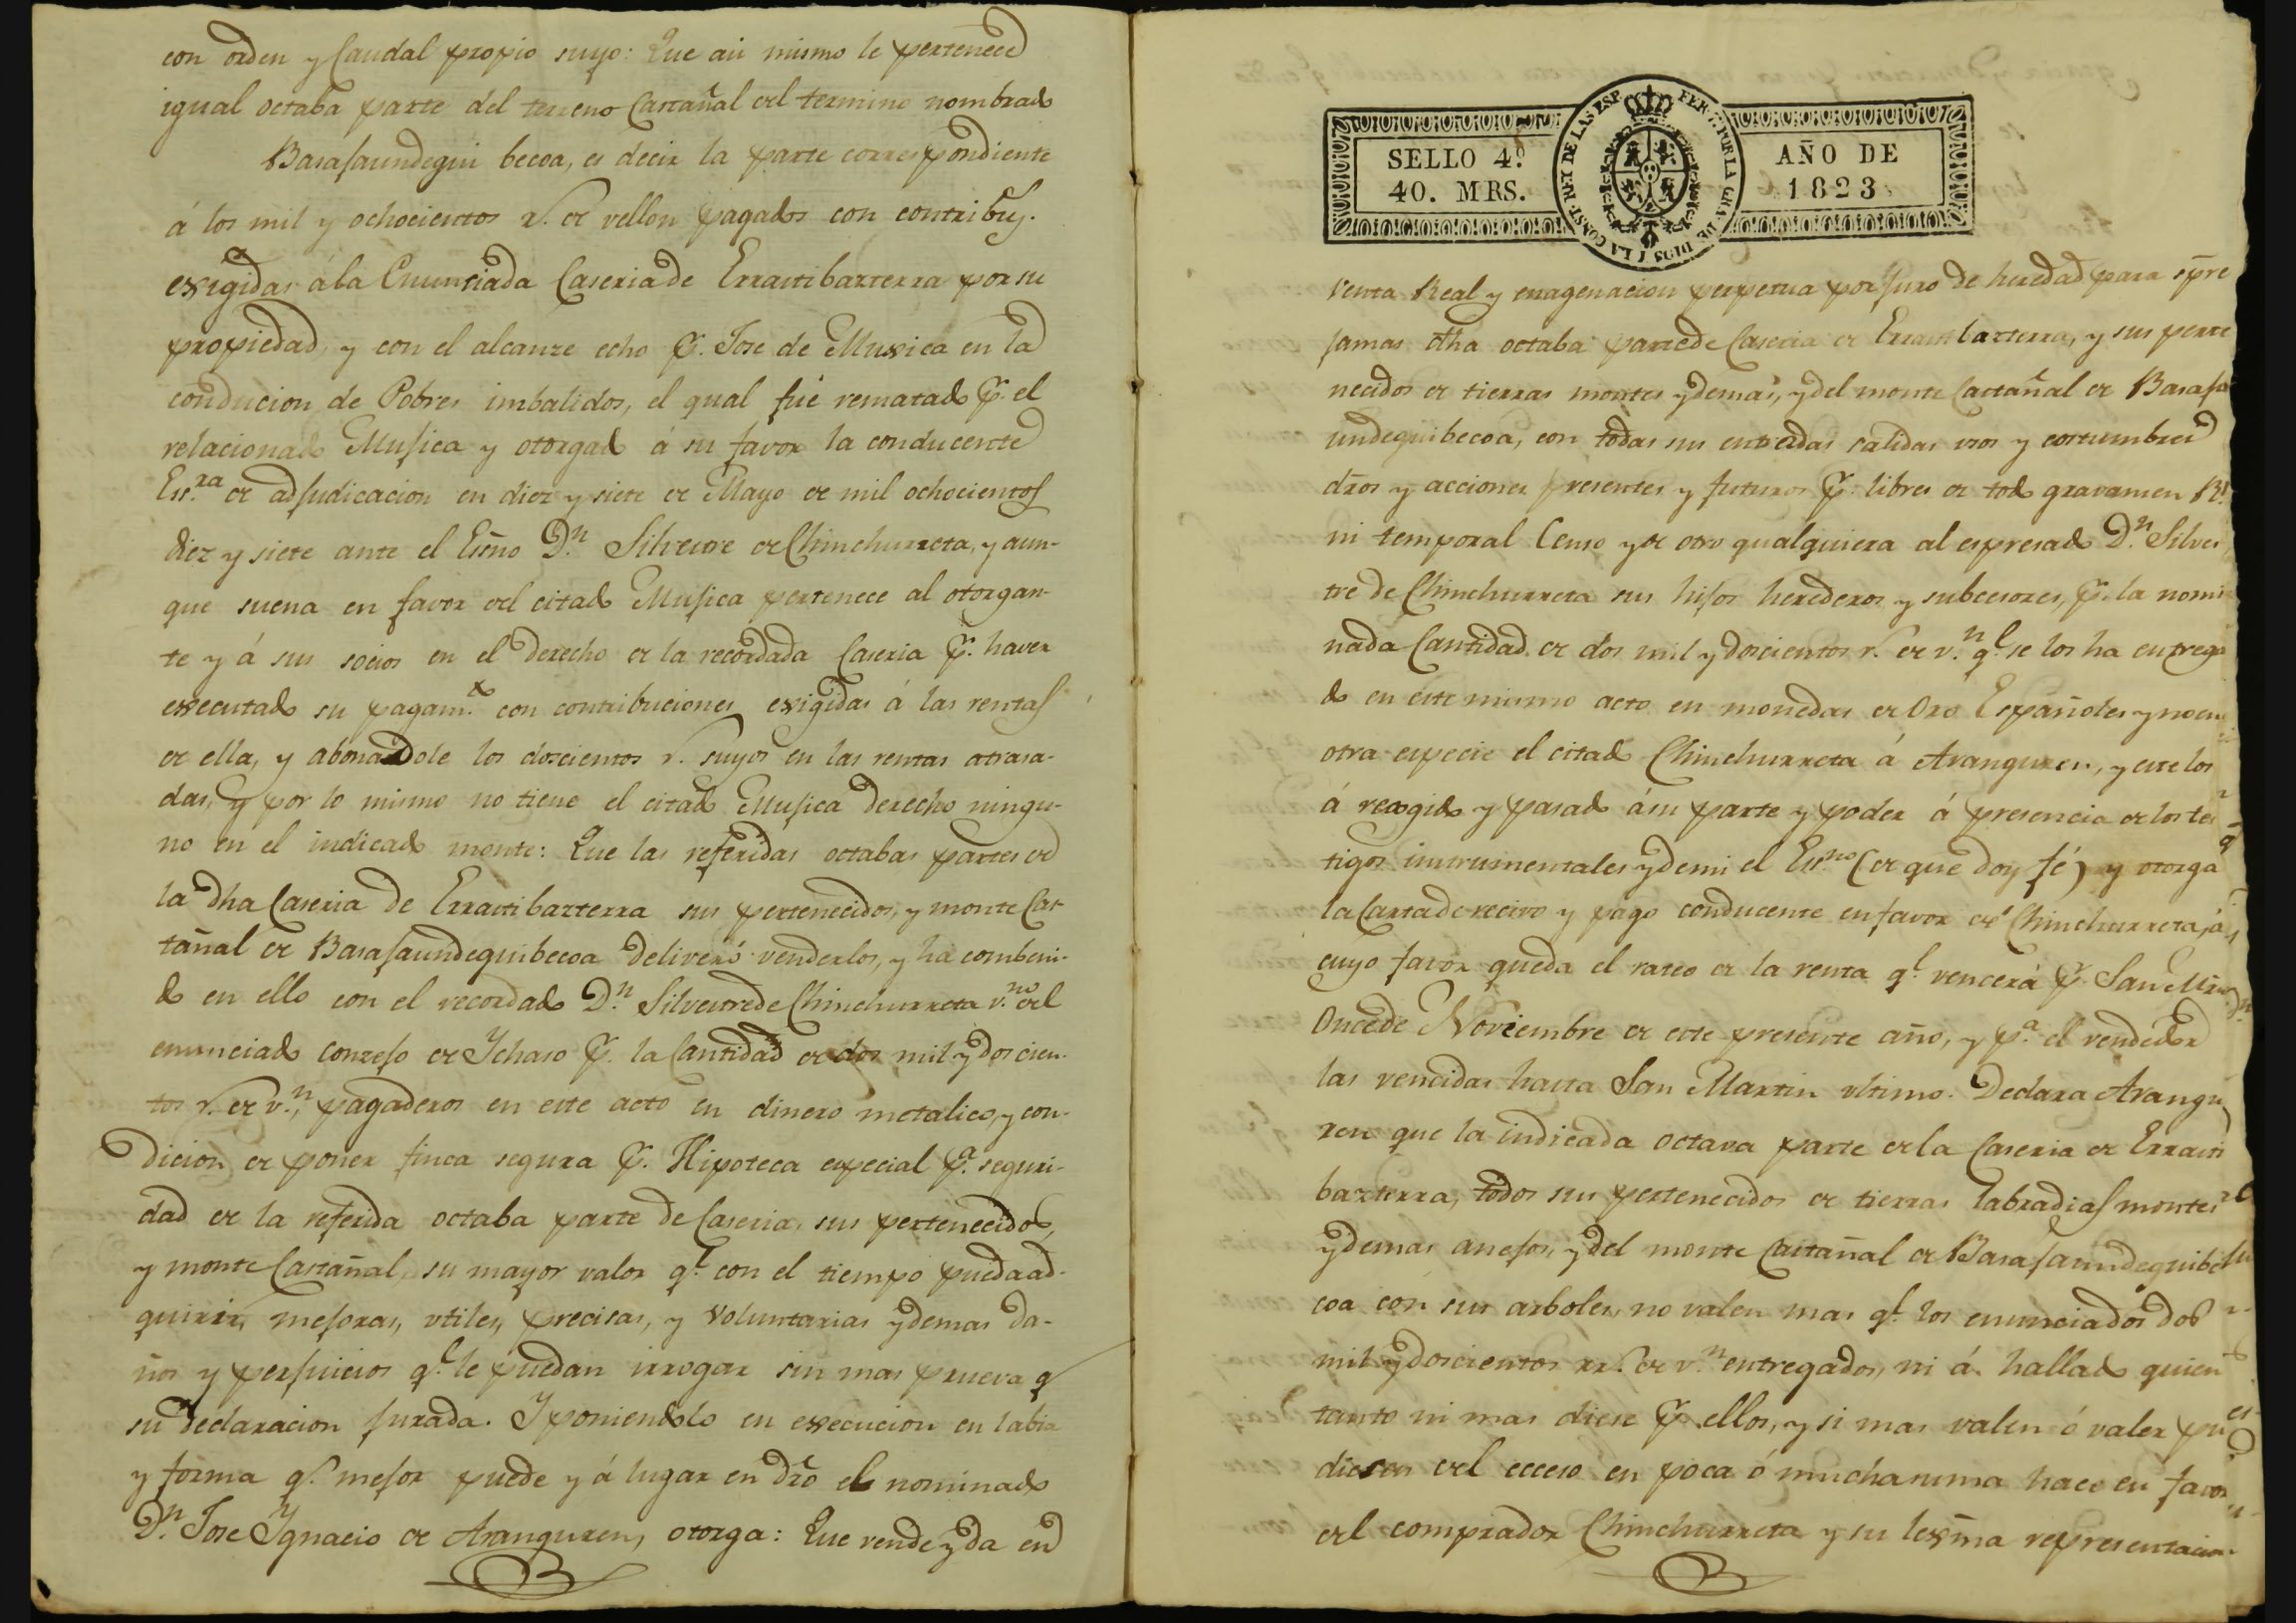 con orden y Caudal propio suyo: Que asi mismo le pertenece
igual octaba parte del terreno Castañal del termino nombrado
Basasaundegui becoa, es decir la parte correspondiente
á los mil y ochocientos r.s de vellon pagados con contribus.
exigidas á la Enunciada Caseria de Erraitibarterra por su
propiedad, y con el alcanze echo p.r Jose de Muxica en la
conducion de Pobres imbalidos, el qual fué rematado p.r el
relacionado Mujica y otorgado á su favor la conducente
Ess.ra de adjudicacion en diez y siete de Mayo de mil ochocientos
diez y siete ante el Essño D.n Silvestre de Chinchurreta, y aun-
que suena en favor del citado Mujica pertenece al otorgan-
te y á sus socios en el derecho de la recordada Caseria p.r haver
executado su pagam.to con contribuciones exigidas á las rentas
de ella, y abonadole los doscientos r.s suyos en las rentas atrasa-
das, y por lo mismo no tiene el citado Mujica derecho ningu-
no en el indicado monte: Que las referidas octabas partes de
la dha Caseria de Erraitibarterra sus pertenecidos, y monte Cas-
tañal de Basasaundeguibecoa deliveró venderlos, y ha combeni-
do en ello con el recordado D.n Silvestre de Chinchurreta v.no del
enunciado conzejo de Ychaso p.r la Cantidad de dos mil y doscien-
tos r.s de v.n, pagaderos en este acto en dinero metalico, y con-
dicion de poner finca segura p.r Hipoteca especial p.a seguri-
dad de la referida octaba parte de Caseria, sus pertenecidos,
y monte Castañal, su mayor valor q.e con el tiempo pueda ad-
quirir, mejoras, utiles, precisas, y voluntarias y demas da-
ños y perjuicios q.e le puedan irrogar sin mas prueva q
su declaracion jurada. Y poniendolo en execucion en la bia
y forma q.e mejor puede y á lugar en dro el nominado
D.n Jose Ygnacio de Aranguren, otorga: Que vende y da en
SELLO 4º
40. MRS.
FER. 7º POR LA GRA. DE DIOS Y LA CONST. REY DE LAS ESP.
AÑO DE
1823
venta Real y enagenacion perpetua por juro de heredad para spre
jamas dha octaba parte de Caseria de Erraitibarterra, y sus perte
necidos de tierras montes y demas, y del monte Castañal de Basasa
undeguibecoa, con todas sus entradas salidas usos y costumbres
dros y acciones presentes y futuros p.r libres de todo gravamen R.l
ni temporal Censo y de otro qualquiera al espresado D.n Silves
tre de Chinchurreta sus hijos herederos y subcesores, p.r la nomi
nada Cantidad de dos mil y doscientos r.s de v.n q.e se los ha entrega
do en este mismo acto en monedas de Oro Españoles y no en
otra especie el citado Chinchurreta á Aranguren, y este los
á recogido y pasado á su parte y poder á presencia de los tes
tigos instrumentales y de mi el Ess.no (de que doy fé) y otorga
la Carta de recivo y pago conducente en favor de Chinchurreta, á
cuyo favor queda el rateo de la renta q.e vencerá p.r San Mrn
Once de Noviembre de este presente año, y p.a el vendedor
las vencidas hasta San Martin ultimo. Declara Arangu
ren que la indicada octava parte de la Caseria de Erraiti
barterra, todos sus pertenecidos de tierras labradias montes
y demas anejos, y del monte Castañal de Basasaundeguibe
coa con sus arboles, no valen mas q.e los enunciados dos
mil y doscientos rr.s de v.n entregados, ni á hallado quien
tanto ni mas diese p.r ellos, y si mas valen ó valer pu
diesen del ecceso en poca ó mucha suma hace en favor
del comprador Chinchurreta y su lexma representacion